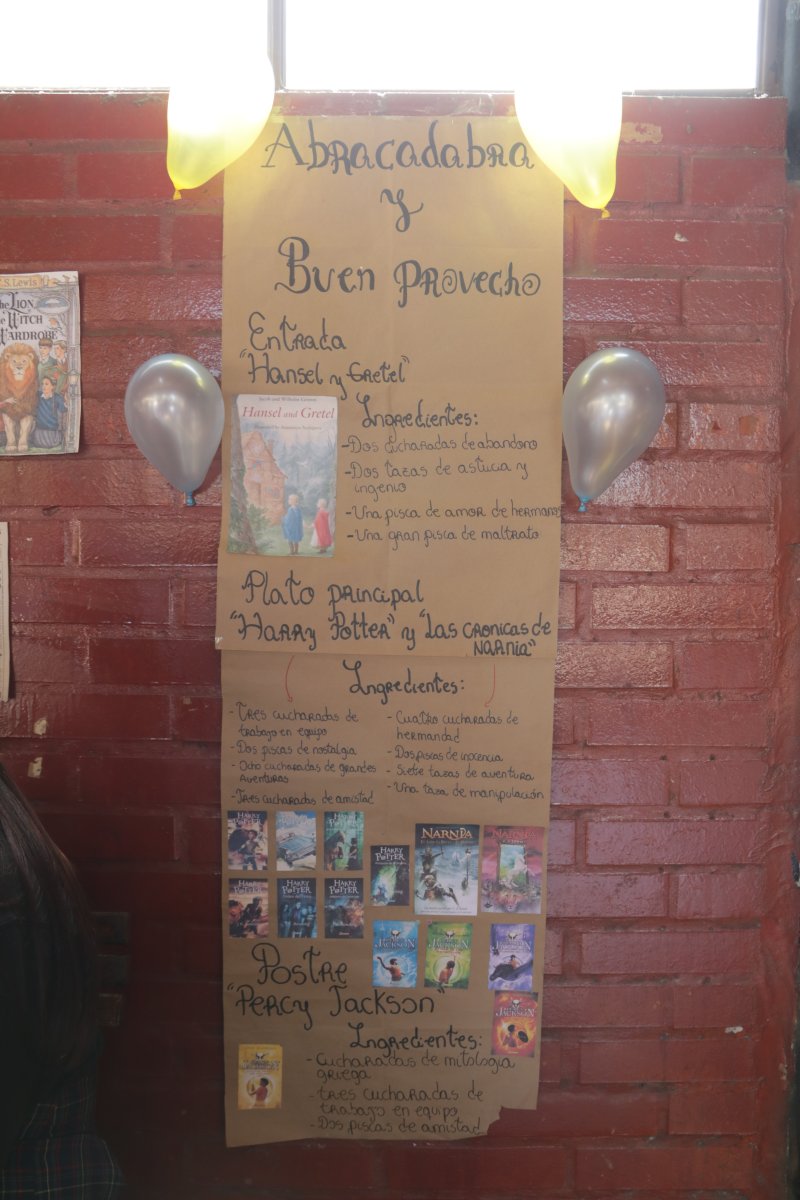 Abracadabra
y
Buen Provecho
Entrada
"Hansel y Gretel"
C.S. Lewis
The Lion,
the Witch
Wardrobe
Jacob and Wilhelm Grimm
Hansel and Gretel
Ingredientes:
- Dos cucharadas de abandono
- Dos tazas de astucia y
ingenio
- Una pisca de amor de hermanos
- Una gran pisca de maltrato
Plato principal
"Harry Potter" y "Las cronicas de
Narnia"
Ingredientes:
- Tres cucharadas de
trabajo en equipo
- Dos piscas de nostalgia
- Ocho cucharadas de grandes
aventuras
- Tres cucharadas de amistad
- Cuatro cucharadas de
hermandad
- Dos piscas de inocencia
- Siete tazas de aventura
- Una taza de manipulación
Harry
Potter
Harry
Potter
Harry
Potter
Harry
Potter
Harry
Potter
Harry
Potter
Harry
Potter
NARNIA
NARNIA
Jackson
Jackson
Jackson
Jackson
Postre
"Percy Jackson"
Ingredientes:
- Cucharadas de mitologia
griega
- tres cucharadas de
trabajo en equipo
- Dos piscas de amistad